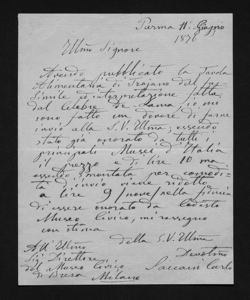 Parma 11. Giugno
1876
Illmo Signore
Avendo pubblicato la Tavola
Alimentaria di Trajano del
ed interpretazione fatta
dal Celebre De Lama, io mi
sono fatto un dovere di farne
invio alla S. V. Illma, essendo
stato già onorato da tutti
principali Musei d'Italia
il prezzo è di lire 10 ma
essendo smontata per comodità
d'invio viene ridotta
a lire 9, nove, nella
di essere onorato da codesto
Museo Civico, mi rassegno
con stima
Della S. V. Illma
All' Illmo
Sig. Direttore
del Museo Civico
di Brera Milano
Devotmo
Saccani Carlo